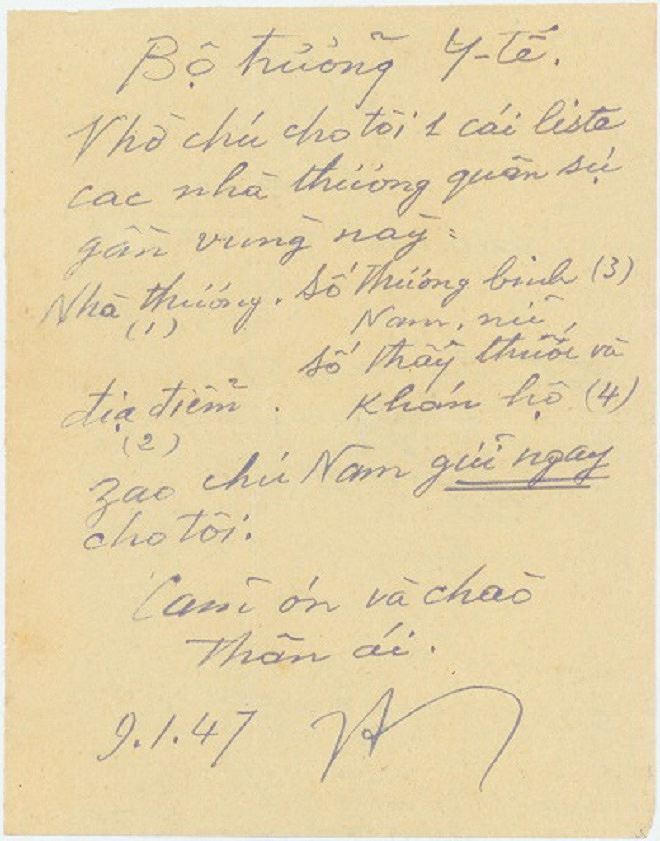 Bộ trưởng Y-tế.
Nhờ chú cho tôi 1 cái liste
các nhà thương quân sự
gần vùng này:
Nhà thương. Số thương binh (3)
(1) Nam, nữ,
Số thầy thuốc và
địa điểm. khán hộ (4)
(2)
zao chú Nam gửi ngay
cho tôi.
Cám ơn và chào
thân ái.
9.1.47